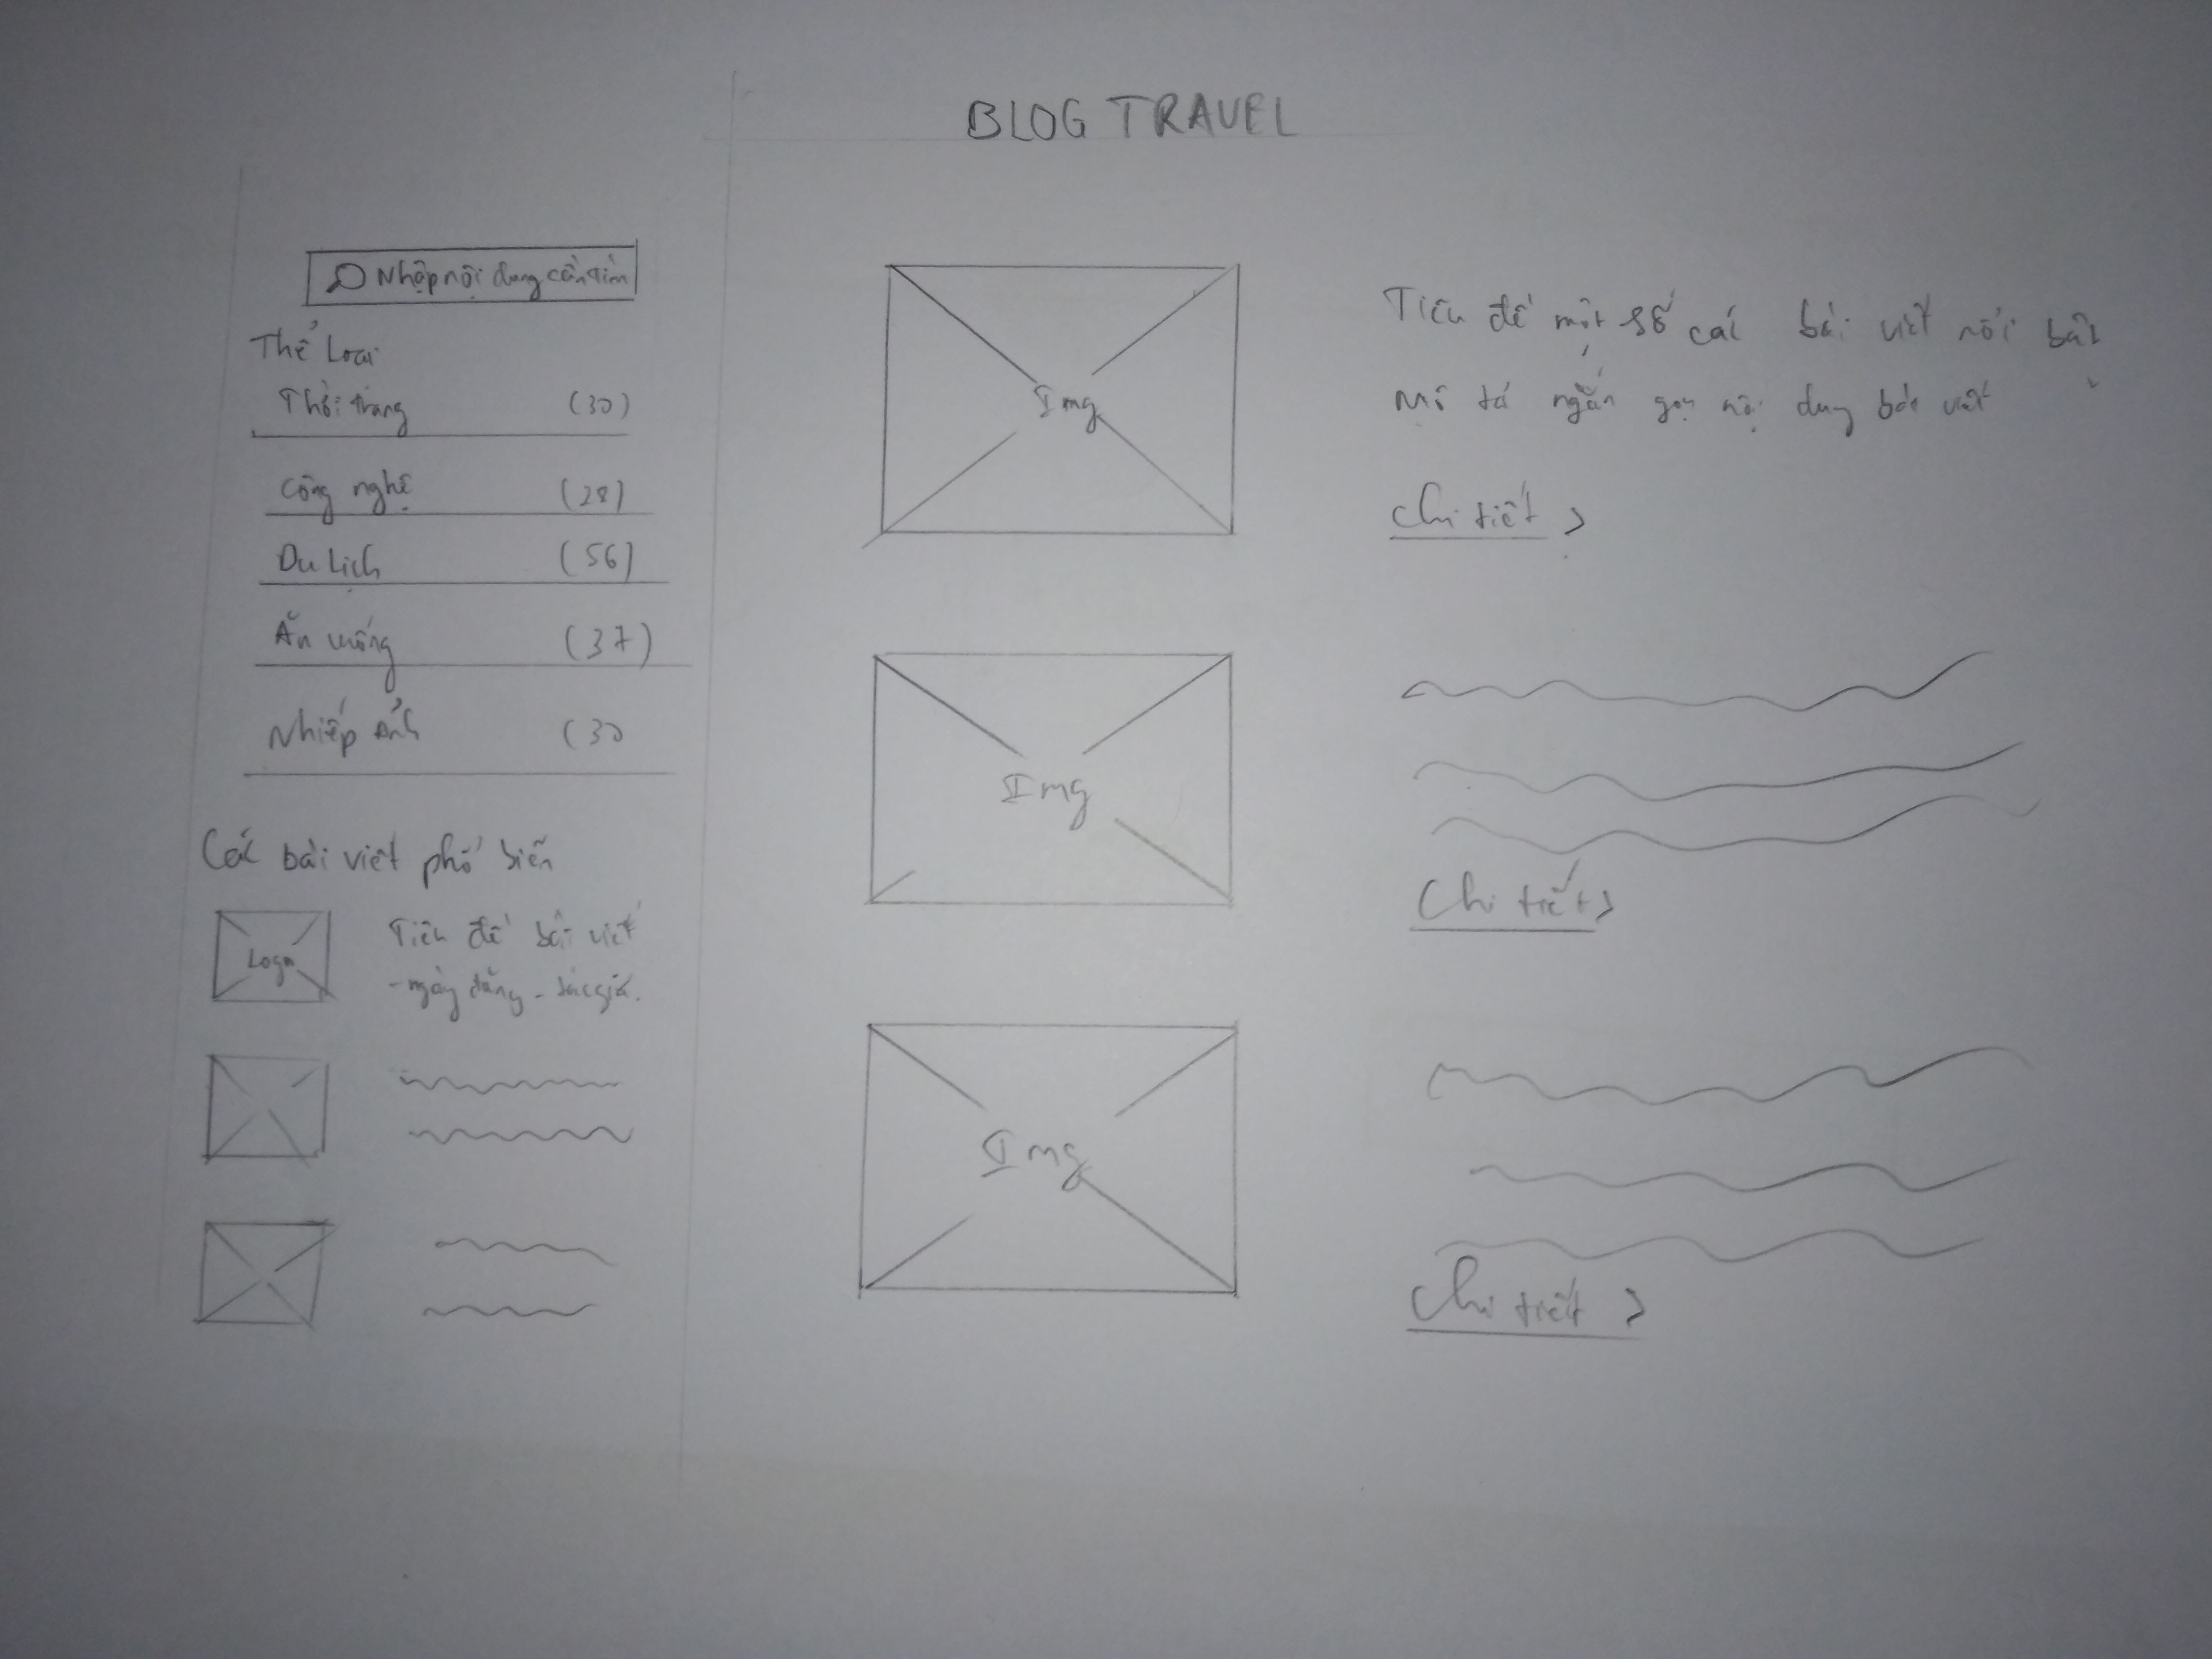 BLOG TRAVEL
Nhập nội dung cần tìm
Thể Loại
Thời trang (30)
Công nghệ (28)
Du Lịch (56)
Ăn uống (37)
Nhiếp ảnh (30
Các bài viết phổ biến
Logo
Tiêu đề bài viết
- ngày đăng - tác giả.
Img
Tiêu đề một số các bài viết nổi bật
Mô tả ngắn gọn nội dung bài viết
Chi tiết >
Img
Chi tiết >
Img
Chi tiết >